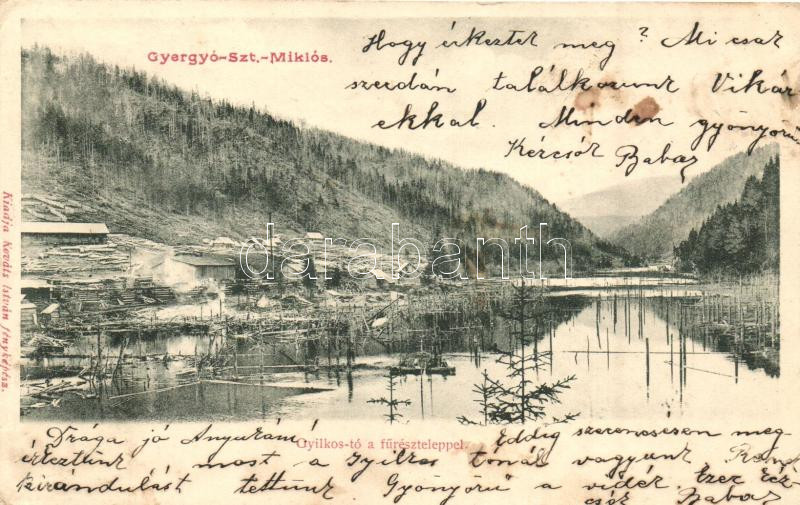 Gyergyó-Szt.-Miklós.
Hogy érkeztek meg? Mi csak
szerdán találkozunk Vikár
ékkal. Minden gyönyörü
Kézcsók Babaz
Kiadja Kováts István fényképész.
darabanth
Gyilkos-tó a fűrészteleppel.
Drága jó Anyukám Eddig szerencsésen meg
érkeztünk most a Gyilkos tónál vagyunk
kirándulást tettünk Gyönyörü a vidék. Ezer kéz
csók Babaz